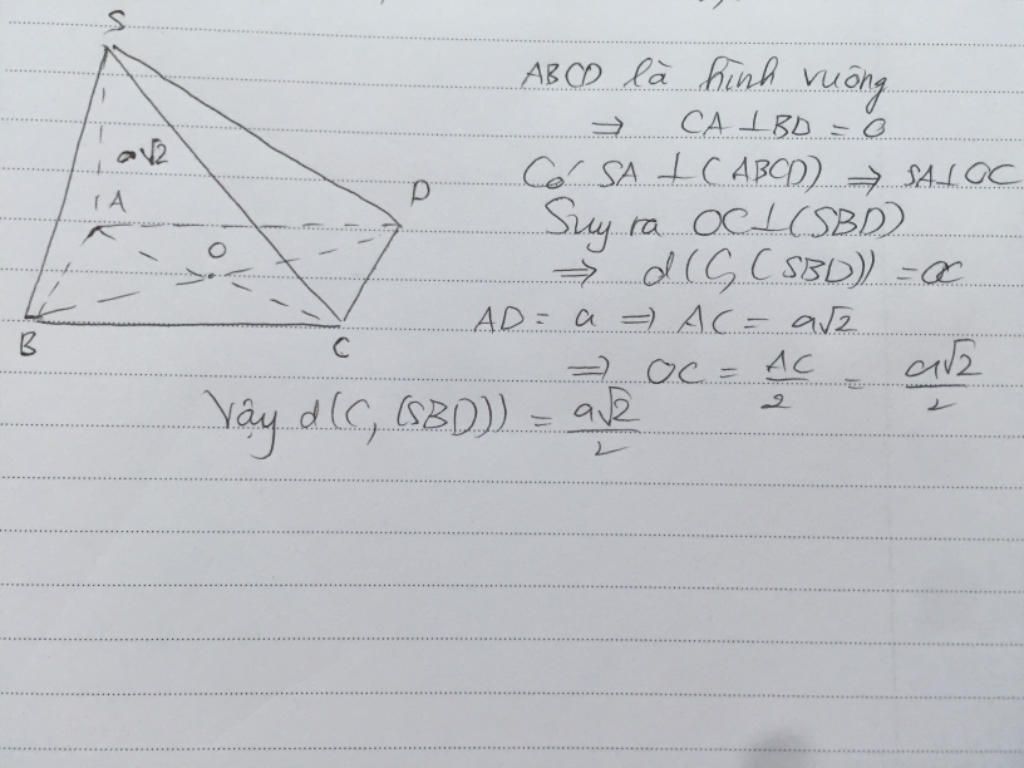 S
a√2
A
D
O
B
C
ABCD là hình vuông
⇒ CA ⊥ BD = O
Có SA ⊥ (ABCD) ⇒ SA ⊥ OC
Suy ra OC ⊥ (SBD)
⇒ d(C, (SBD)) = OC
AD = a ⇒ AC = a√2
⇒ OC = AC/2 = a√2/2
Vậy d(C, (SBD)) = a√2/2